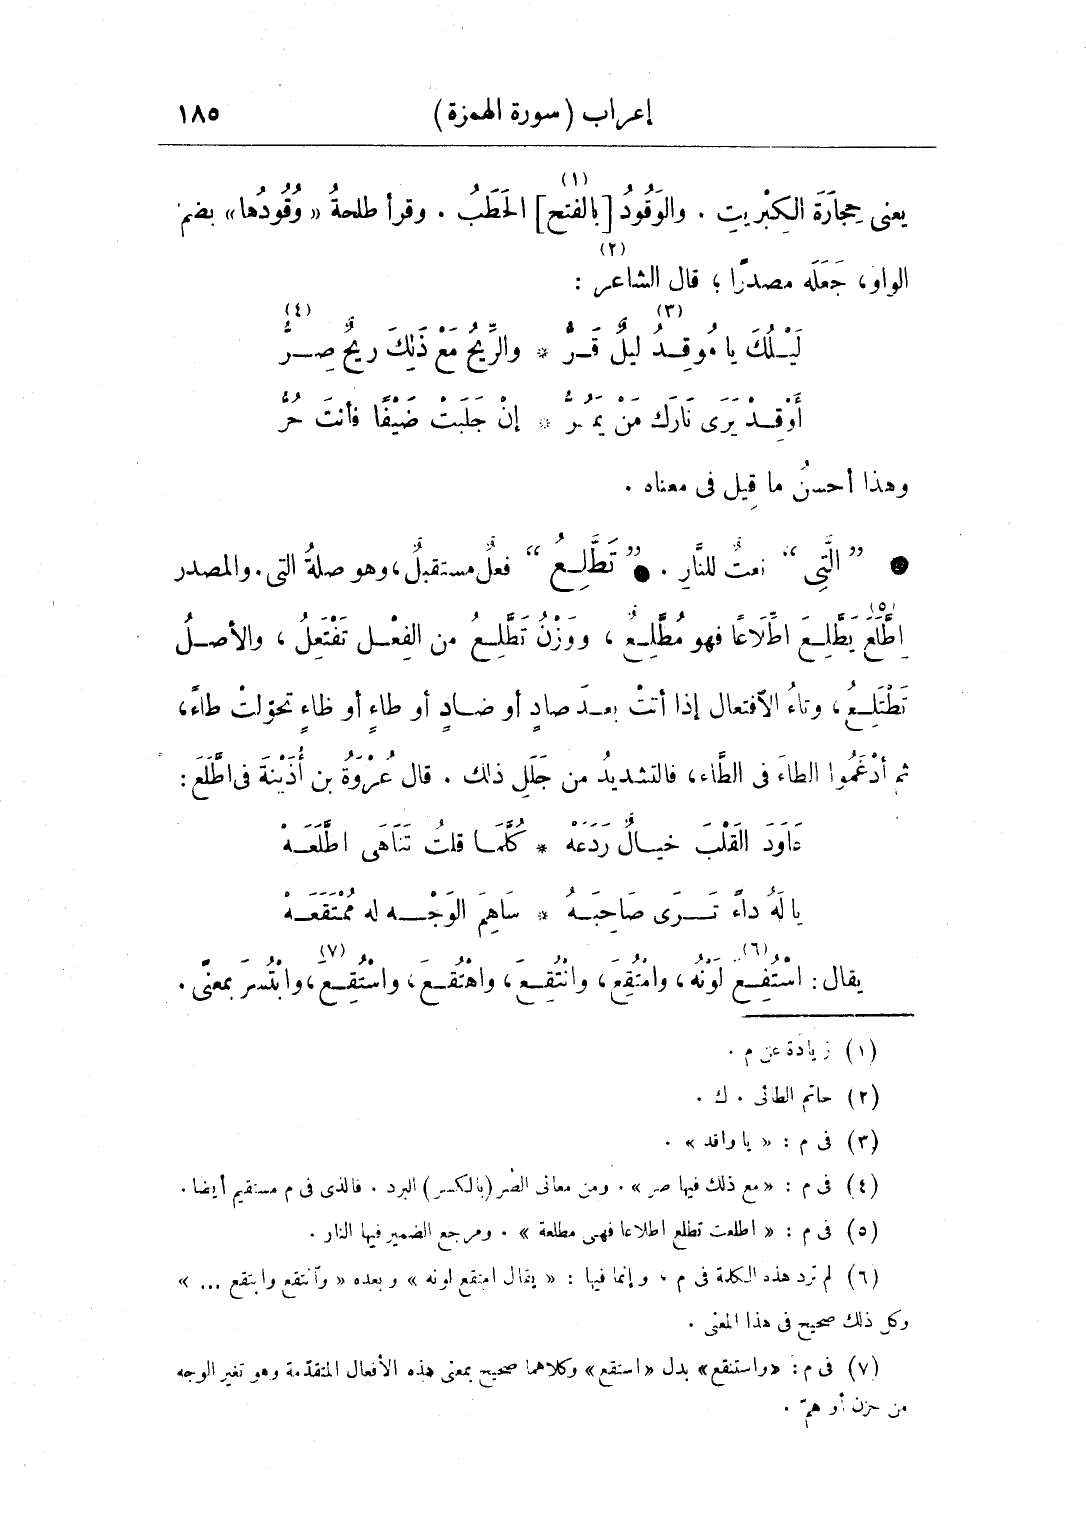 إعراب (سورة الهمزة) ١٨٥
يعنى حِجارَةَ الكِبْريتِ . والوَقُودُ [بالفتح] (١) الحَطَبُ . وقرأ طلحةُ «وُقُودُها» بضم
الواو، جَعَلَه مصدرًا (٢) ؛ قال الشاعر :
لَيْلُكَ يا مُوقِدُ (٣) ليلٌ قَرُّ * والرِّيحُ مَعَ ذَلِكَ ريحٌ صِرُّ (٤)
أَوْقِدْ يَرَى نَارَك مَنْ يَمُرُّ * إنْ جَلَبَتْ ضَيْفًا فأنتَ حُرُّ
وهذا أحسنُ ما قِيل فى معناه .
● ” الَّتِى “ نعتٌ للنَّارِ . ● ” تَطَّلِعُ “ فعلٌ مستقبلٌ، وهو صلةُ التى . والمصدر
اِطَّلَعَ (٥) يَطَّلِعَ اطِّلَاعًا فهو مُطَّلِعٌ ، ووَزْنُ تَطَّلِعُ من الفِعْل تَفْتَعِلُ ، والأصلُ
تَطْتَلِعُ، وتاءُ الآفتعال إذا أتتْ بعدَ صادٍ أو ضادٍ أو طاءٍ أو ظاءٍ تحوّلتْ طاءً،
ثم أدْغَمُوا الطاءَ فى الطَّاء، فالتشديدُ من جَلَلِ ذلك . قال عُرْوَةُ بن أُذَيْنَةَ فى اطَّلَعَ :
عَاوَدَ القَلْبَ خيالٌ رَدَعَهْ * كُلَّمَا قلتُ تَنَاهَى اطَّلَعَهْ
يا لَهُ داءً تَرَى صَاحِبَهُ * سَاهِمَ الوَجْهِ له مُمْتَقَعَهْ
يقال : اسْتُفِعَ (٦) لَوْنُه، وامْتُقِعَ، وانْتُقِعَ، واهْتُقِعَ، واسْتُقِعَ (٧)، وابْتُسِرَ بمعنًى .
(١) زيادة عن م .
(٢) حاتم الطائى . ك .
(٣) فى م : « يا واقد » .
(٤) فى م : «مع ذلك فيها صر» . ومن معانى الصر (بالكسر) البرد . فالذى فى م مستقيم أيضا .
(٥) فى م : « اطلعت تطلع اطلاعا فهى مطلعة » . ومرجع الضمير فيها النار .
(٦) لم ترد هذه الكلمة فى م ، وإنما فيها : « يقال امتقع لونه » وبعده « وآنتقع وابتقع ... »
وكل ذلك صحيح فى هذا المعنى .
(٧) فى م : «واستنقع» بدل «استقع» وكلاهما صحيح بمعنى هذه الأفعال المتقدّمة وهو تغير الوجه
من حزن أو همّ .